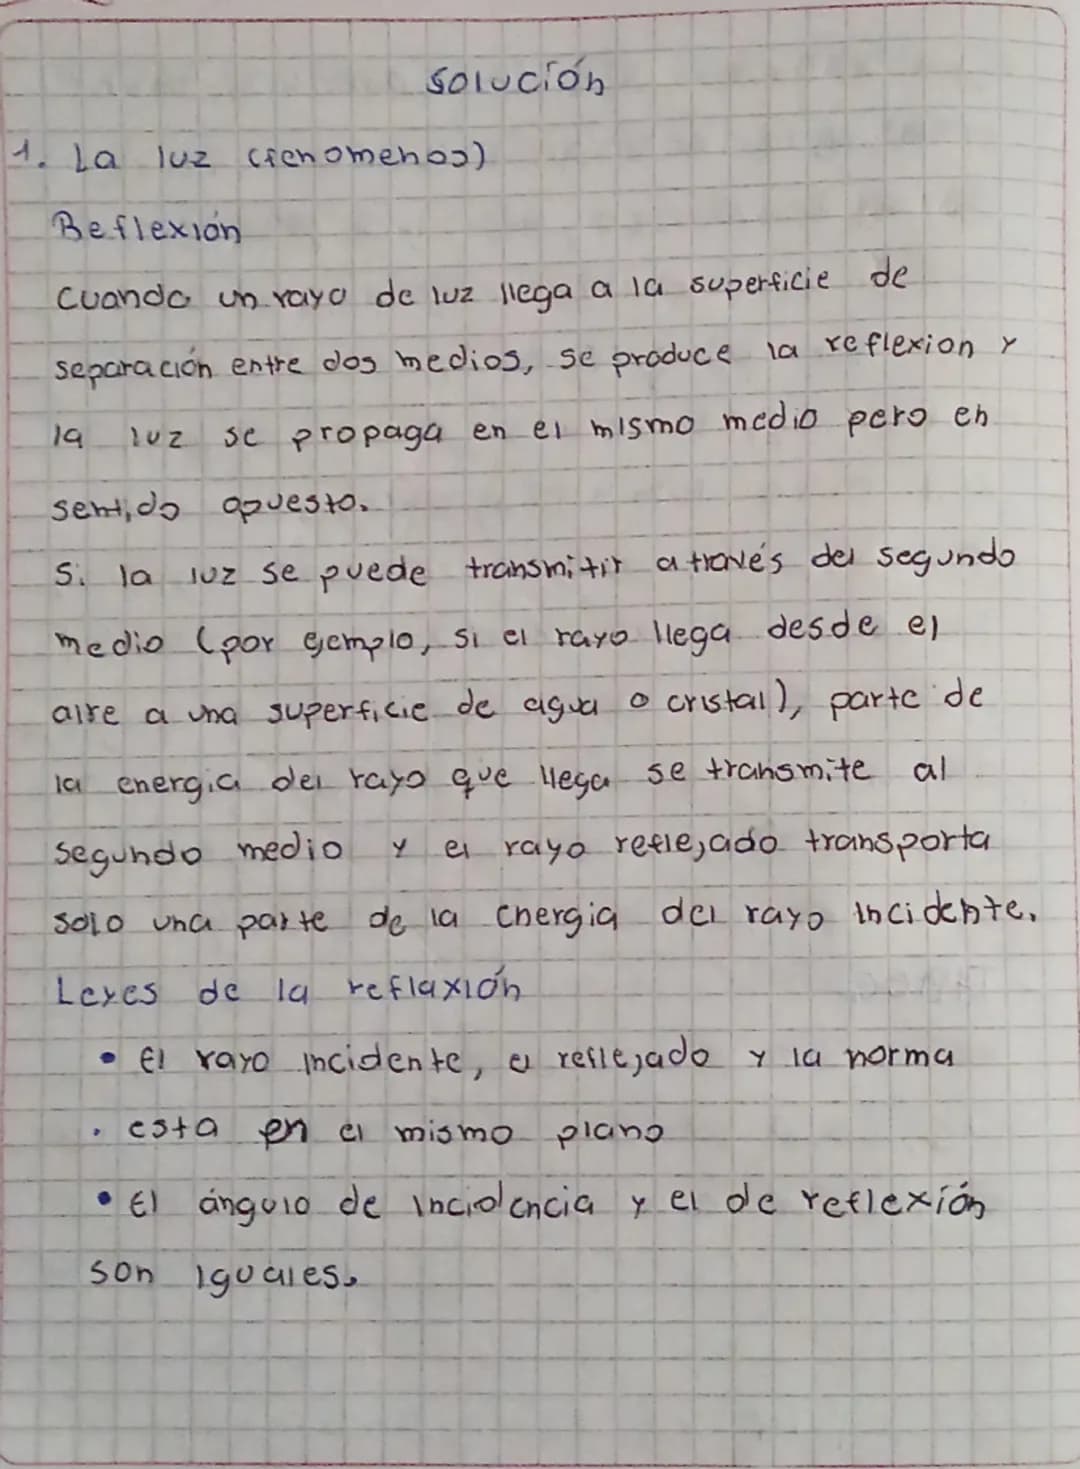 Solución
1. La luz (fenomenos)
Reflexión
Cuando un rayo de luz llega a la superficie de
separación entre dos medios, se produce la reflexion y
la luz se propaga en el mismo medio pero en
sentido opuesto.
Si la luz se puede transmitir a través del segundo
medio (por ejemplo, si el rayo llega desde el
aire a una superficie de agua o cristal), parte de
la energia del rayo que llega se transmite al
segundo medio y el rayo reflejado transporta
solo una parte de la energia del rayo incidente.
Leyes de la reflaxión
• El rayo incidente, el reflejado y la norma
• esta en el mismo plano
• El ángulo de incidencia y el de reflexión
son iguales.